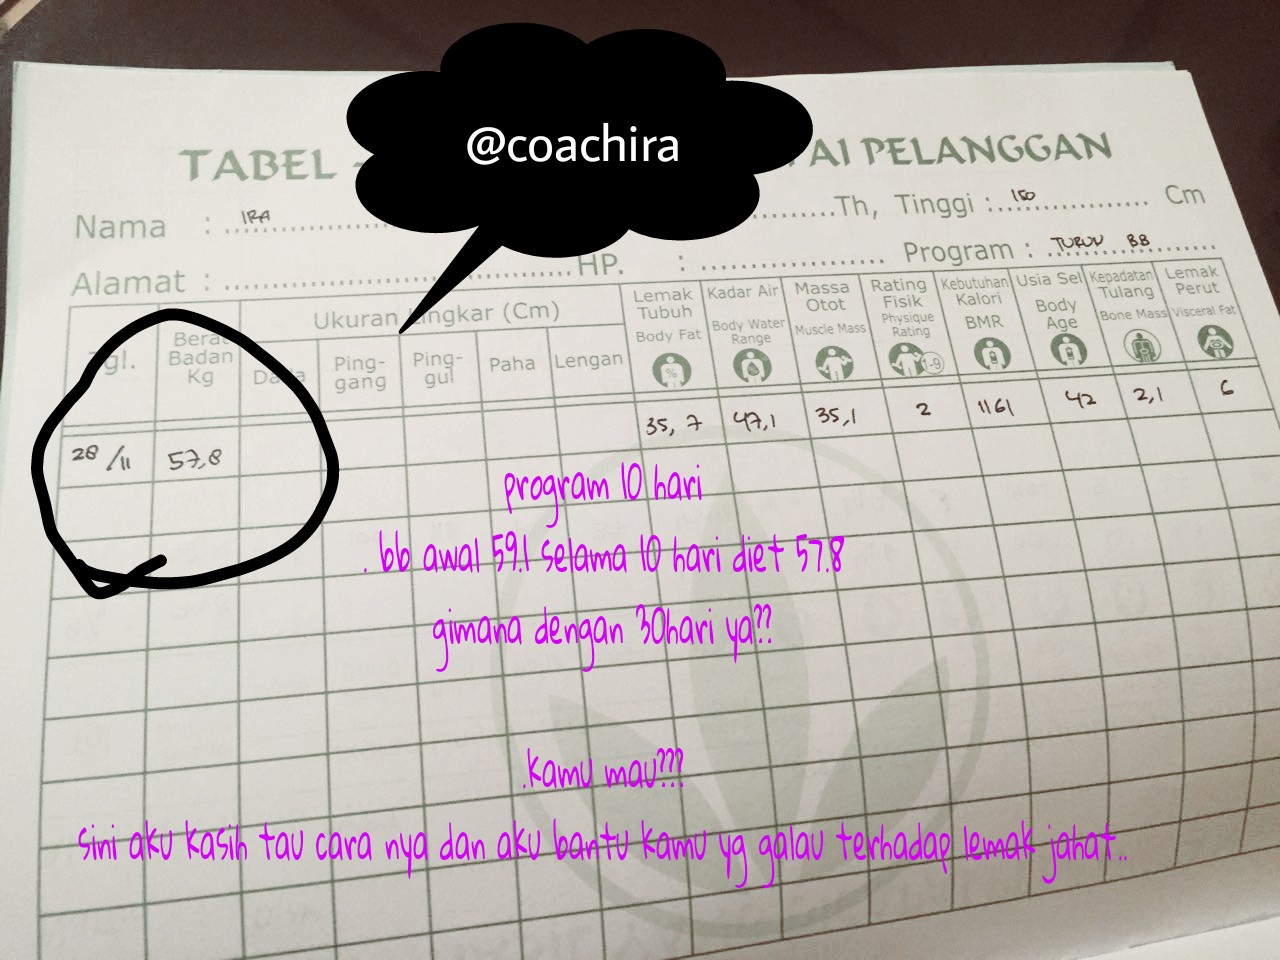 @coachira
TABEL - AI PELANGGAN
Nama : IRA Th, Tinggi : 150 Cm
Alamat : HP. : Program : TURUN BB
Tgl.
Berat Badan Kg
Ukuran Lingkar (Cm)
Dada
Ping-gang
Ping-gul
Paha
Lengan
Lemak Tubuh
Body Fat
%
Kadar Air
Body Water Range
Massa Otot
Muscle Mass
Rating Fisik
Physique Rating
1-9
Kebutuhan Kalori
BMR
Usia Sel
Body Age
Kepadatan Tulang
Bone Mass
Lemak Perut
Visceral Fat
28/11 57,8 35,7 47,1 35,1 2 1161 42 2,1 6
program 10 hari
. bb awal 59.1 selama 10 hari diet 57.8
gimana dengan 30hari ya??
.kamu mau???
sini aku kasih tau cara nya dan aku bantu kamu yg galau terhadap lemak jahat..